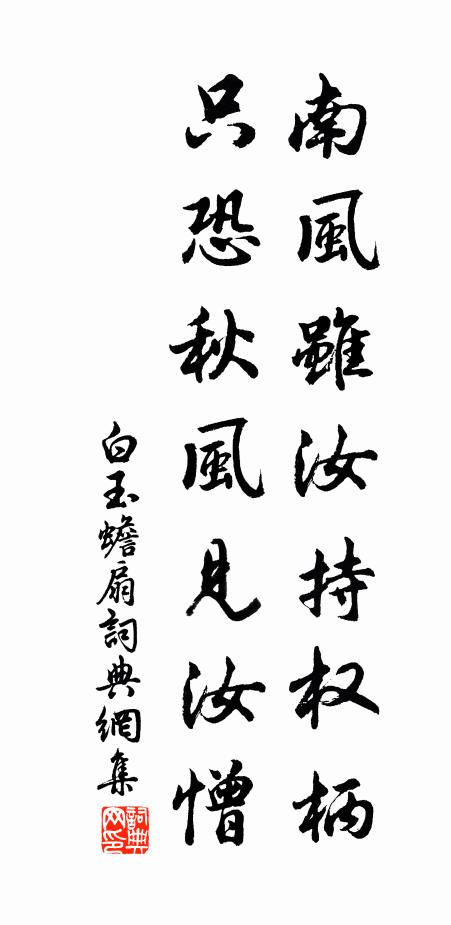 南風雖汝持权柄
只恐秋風見汝憎
白玉蟾扇詞典網集
詞典网印